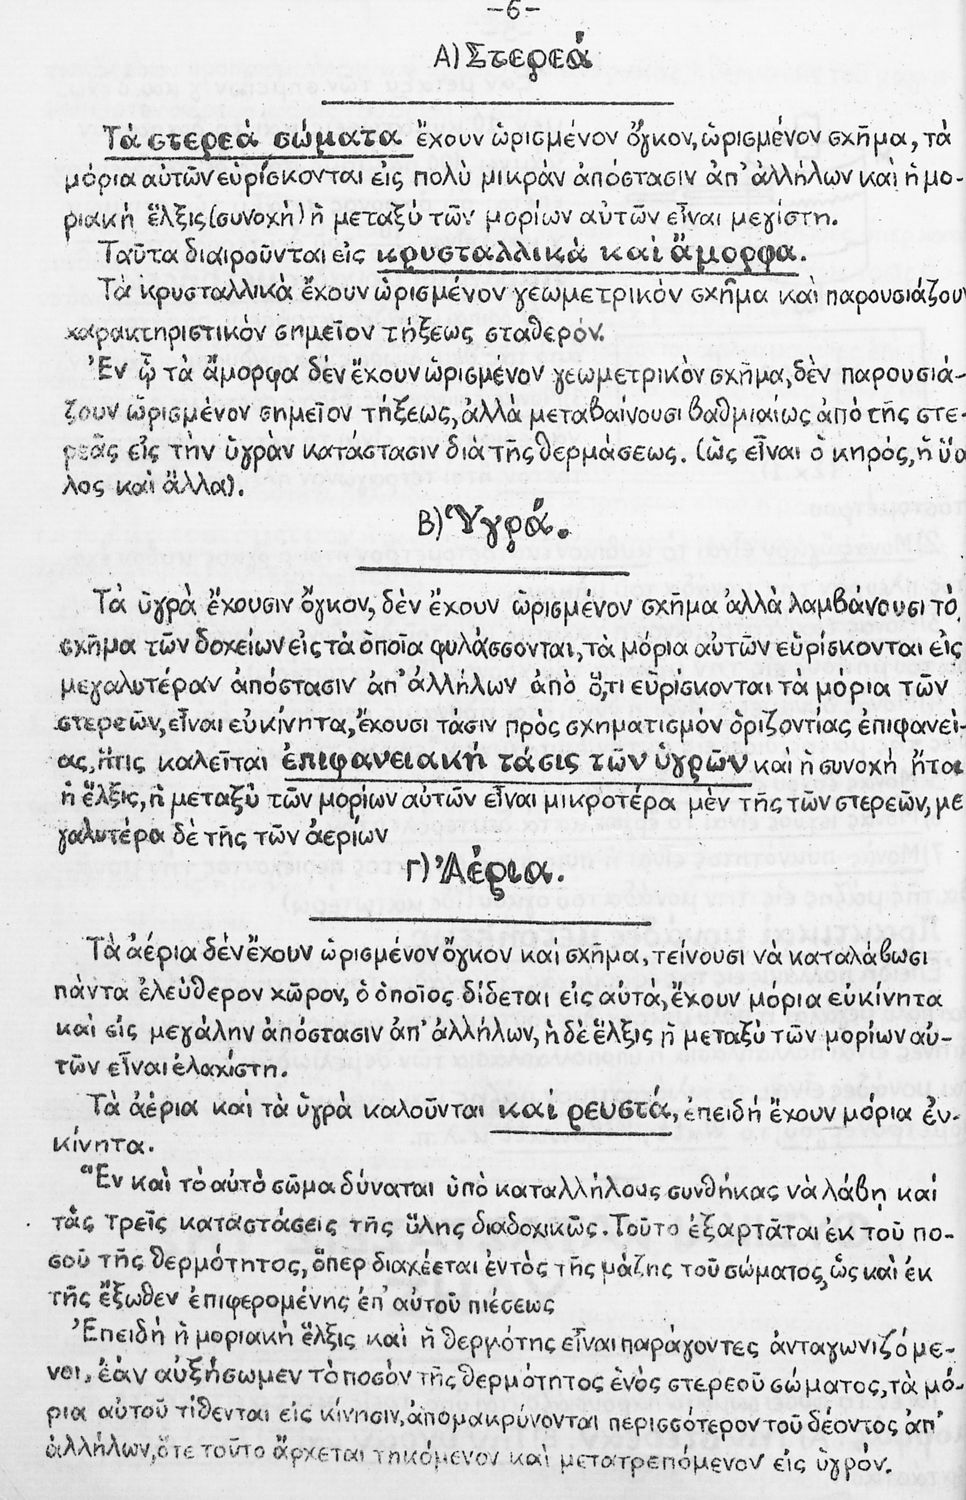 -6-
Α) Στερεά
Τὰ στερεὰ σώματα ἔχουν ὡρισμένον ὄγκον, ὡρισμένον σχῆμα, τὰ
μόρια αὐτῶν εὑρίσκονται εἰς πολὺ μικρὰν ἀπόστασιν ἀπ' ἀλλήλων καὶ ἡ μο-
ριακὴ ἕλξις (συνοχὴ) ἢ μεταξὺ τῶν μορίων αὐτῶν εἶναι μεγίστη.
Ταῦτα διαιροῦνται εἰς κρυσταλλικὰ καὶ ἄμορφα.
Τὰ κρυσταλλικὰ ἔχουν ὡρισμένον γεωμετρικὸν σχῆμα καὶ παρουσιάζουν
χαρακτηριστικὸν σημεῖον τήξεως σταθερόν.
Ἐν ᾧ τὰ ἄμορφα δὲν ἔχουν ὡρισμένον γεωμετρικὸν σχῆμα, δὲν παρουσιά-
ζουν ὡρισμένον σημεῖον τήξεως, ἀλλὰ μεταβαίνουσι βαθμιαίως ἀπὸ τῆς στε-
ρεᾶς εἰς τὴν ὑγρὰν κατάστασιν διὰ τῆς θερμάσεως. (ὡς εἶναι ὁ κηρός, ἡ ὕα
λος καὶ ἄλλα).
Β) Ὑγρά.
Τὰ ὑγρὰ ἔχουσιν ὄγκον, δὲν ἔχουν ὡρισμένον σχῆμα ἀλλὰ λαμβάνουσι τὸ
σχῆμα τῶν δοχείων εἰς τὰ ὁποῖα φυλάσσονται, τὰ μόρια αὐτῶν εὑρίσκονται εἰς
μεγαλυτέραν ἀπόστασιν ἀπ' ἀλλήλων ἀπὸ ὅ,τι εὑρίσκονται τὰ μόρια τῶν
στερεῶν, εἶναι εὐκίνητα, ἔχουσι τάσιν πρὸς σχηματισμὸν ὁριζοντίας ἐπιφανεί-
ας, ἥτις καλεῖται ἐπιφανειακὴ τάσις τῶν ὑγρῶν καὶ ἡ συνοχὴ ἤτοι
ἡ ἕλξις, ἡ μεταξὺ τῶν μορίων αὐτῶν εἶναι μικροτέρα μὲν τῆς τῶν στερεῶν, με
γαλυτέρα δὲ τῆς τῶν ἀερίων
Γ) Ἀέρια.
Τὰ ἀέρια δὲν ἔχουν ὡρισμένον ὄγκον καὶ σχῆμα, τείνουσι νὰ καταλάβωσι
πάντα ἐλεύθερον χῶρον, ὁ ὁποῖος δίδεται εἰς αὐτά, ἔχουν μόρια εὐκίνητα
καὶ εἰς μεγάλην ἀπόστασιν ἀπ' ἀλλήλων, ἡ δὲ ἕλξις ἡ μεταξὺ τῶν μορίων αὐ-
τῶν εἶναι ἐλαχίστη.
Τὰ ἀέρια καὶ τὰ ὑγρὰ καλοῦνται καὶ ρευστά, ἐπειδὴ ἔχουν μόρια ἐυ-
κίνητα.
Ἓν καὶ τὸ αὐτὸ σῶμα δύναται ὑπὸ καταλλήλους συνθήκας νὰ λάβῃ καὶ
τὰς τρεῖς καταστάσεις τῆς ὕλης διαδοχικῶς. Τοῦτο ἐξαρτᾶται ἐκ τοῦ πο-
σοῦ τῆς θερμότητος, ὅπερ διαχέεται ἐντὸς τῆς μάζης τοῦ σώματος, ὡς καὶ ἐκ
τῆς ἔξωθεν ἐπιφερομένης ἐπ' αὐτοῦ πιέσεως
Ἐπειδὴ ἡ μοριακὴ ἕλξις καὶ ἡ θερμότης εἶναι παράγοντες ἀνταγωνιζόμε-
νοι, ἐὰν αὐξήσωμεν τὸ ποσὸν τῆς θερμότητος ἑνὸς στερεοῦ σώματος, τὰ μό-
ρια αὐτοῦ τίθενται εἰς κίνησιν, ἀπομακρύνονται περισσότερον τοῦ δέοντος ἀπ'
ἀλλήλων, ὅτε τοῦτο ἄρχεται τηκόμενον καὶ μετατρεπόμενον εἰς ὑγρόν.